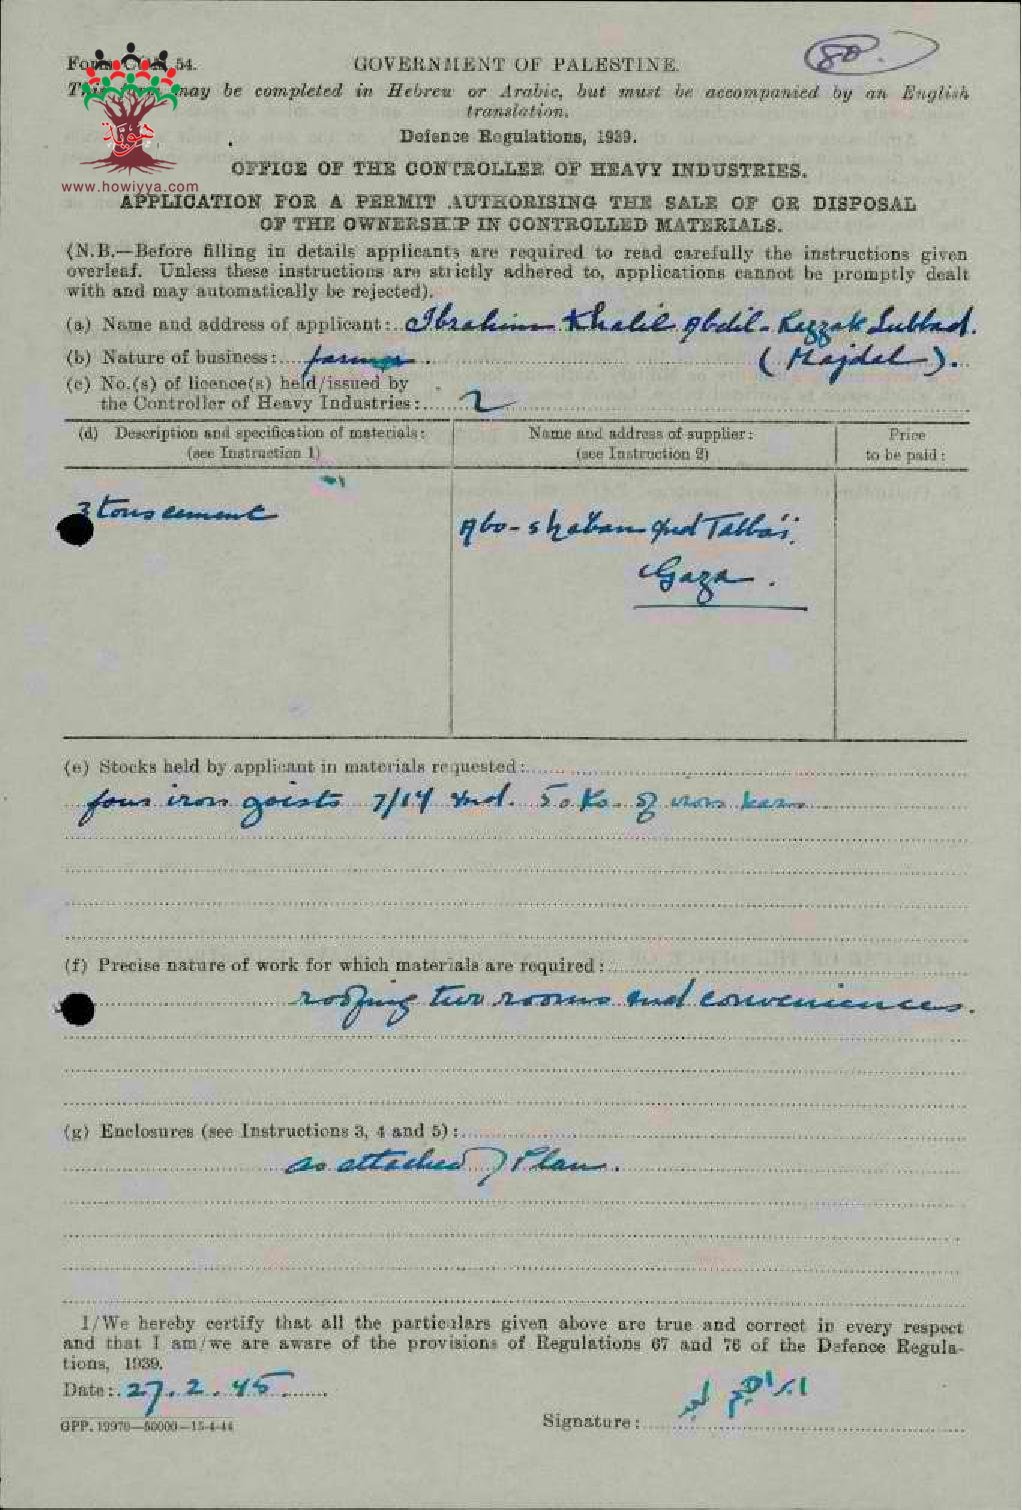 80.
54. GOVERNMENT OF PALESTINE.
may be completed in Hebrew or Arabic, but must be accompanied by an English
translation.
Defence Regulations, 1939.
هوية
www.howiyya.com
OFFICE OF THE CONTROLLER OF HEAVY INDUSTRIES.
APPLICATION FOR A PERMIT AUTHORISING THE SALE OF OR DISPOSAL
OF THE OWNERSHIP IN CONTROLLED MATERIALS.
(N.B.—Before filling in details applicants are required to read carefully the instructions given
overleaf. Unless these instructions are strictly adhered to, applications cannot be promptly dealt
with and may automatically be rejected).
(a) Name and address of applicant: Ibrahim Khalil Abdil-Razzak Lubbad.
(b) Nature of business: farmer (Majdal).
(c) No.(s) of licence(s) held/issued by
the Controller of Heavy Industries: 2
(d) Description and specification of materials: Name and address of supplier: Price
(see Instruction 1) (see Instruction 2) to be paid:
3 tons cement Abo-shaban and Tabba'i.
Gaza.
(e) Stocks held by applicant in materials requested:
four iron goists 7/14 and. 50 Ko. of iron bars
(f) Precise nature of work for which materials are required:
roofing two rooms and conveniences.
(g) Enclosures (see Instructions 3, 4 and 5):
as attached Plan.
I/We hereby certify that all the particulars given above are true and correct in every respect
and that I am/we are aware of the provisions of Regulations 67 and 76 of the Defence Regula-
tions, 1939.
Date: 27.2.45
Signature: ابراهيم
GPP. 19970—50000—15-4-44